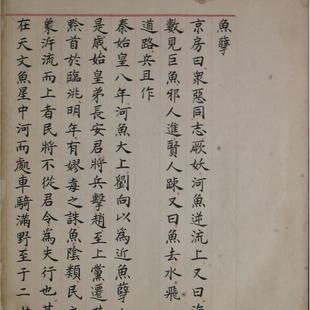 魚孽
京房曰衆惡同志厥妖河魚逆流上又曰海
數見巨魚邪人進賢人踈又曰魚去水飛
道路兵且作
秦始皇八年河魚大上劉向以為近魚孽
是歲始皇弟長安君將兵擊趙至上黨遷其
黔首於臨洮明年有嫪毐之誅魚陰類民
象泝流而上者民將不從君令為失行也其
在天文魚星中河而處車騎滿野至于二